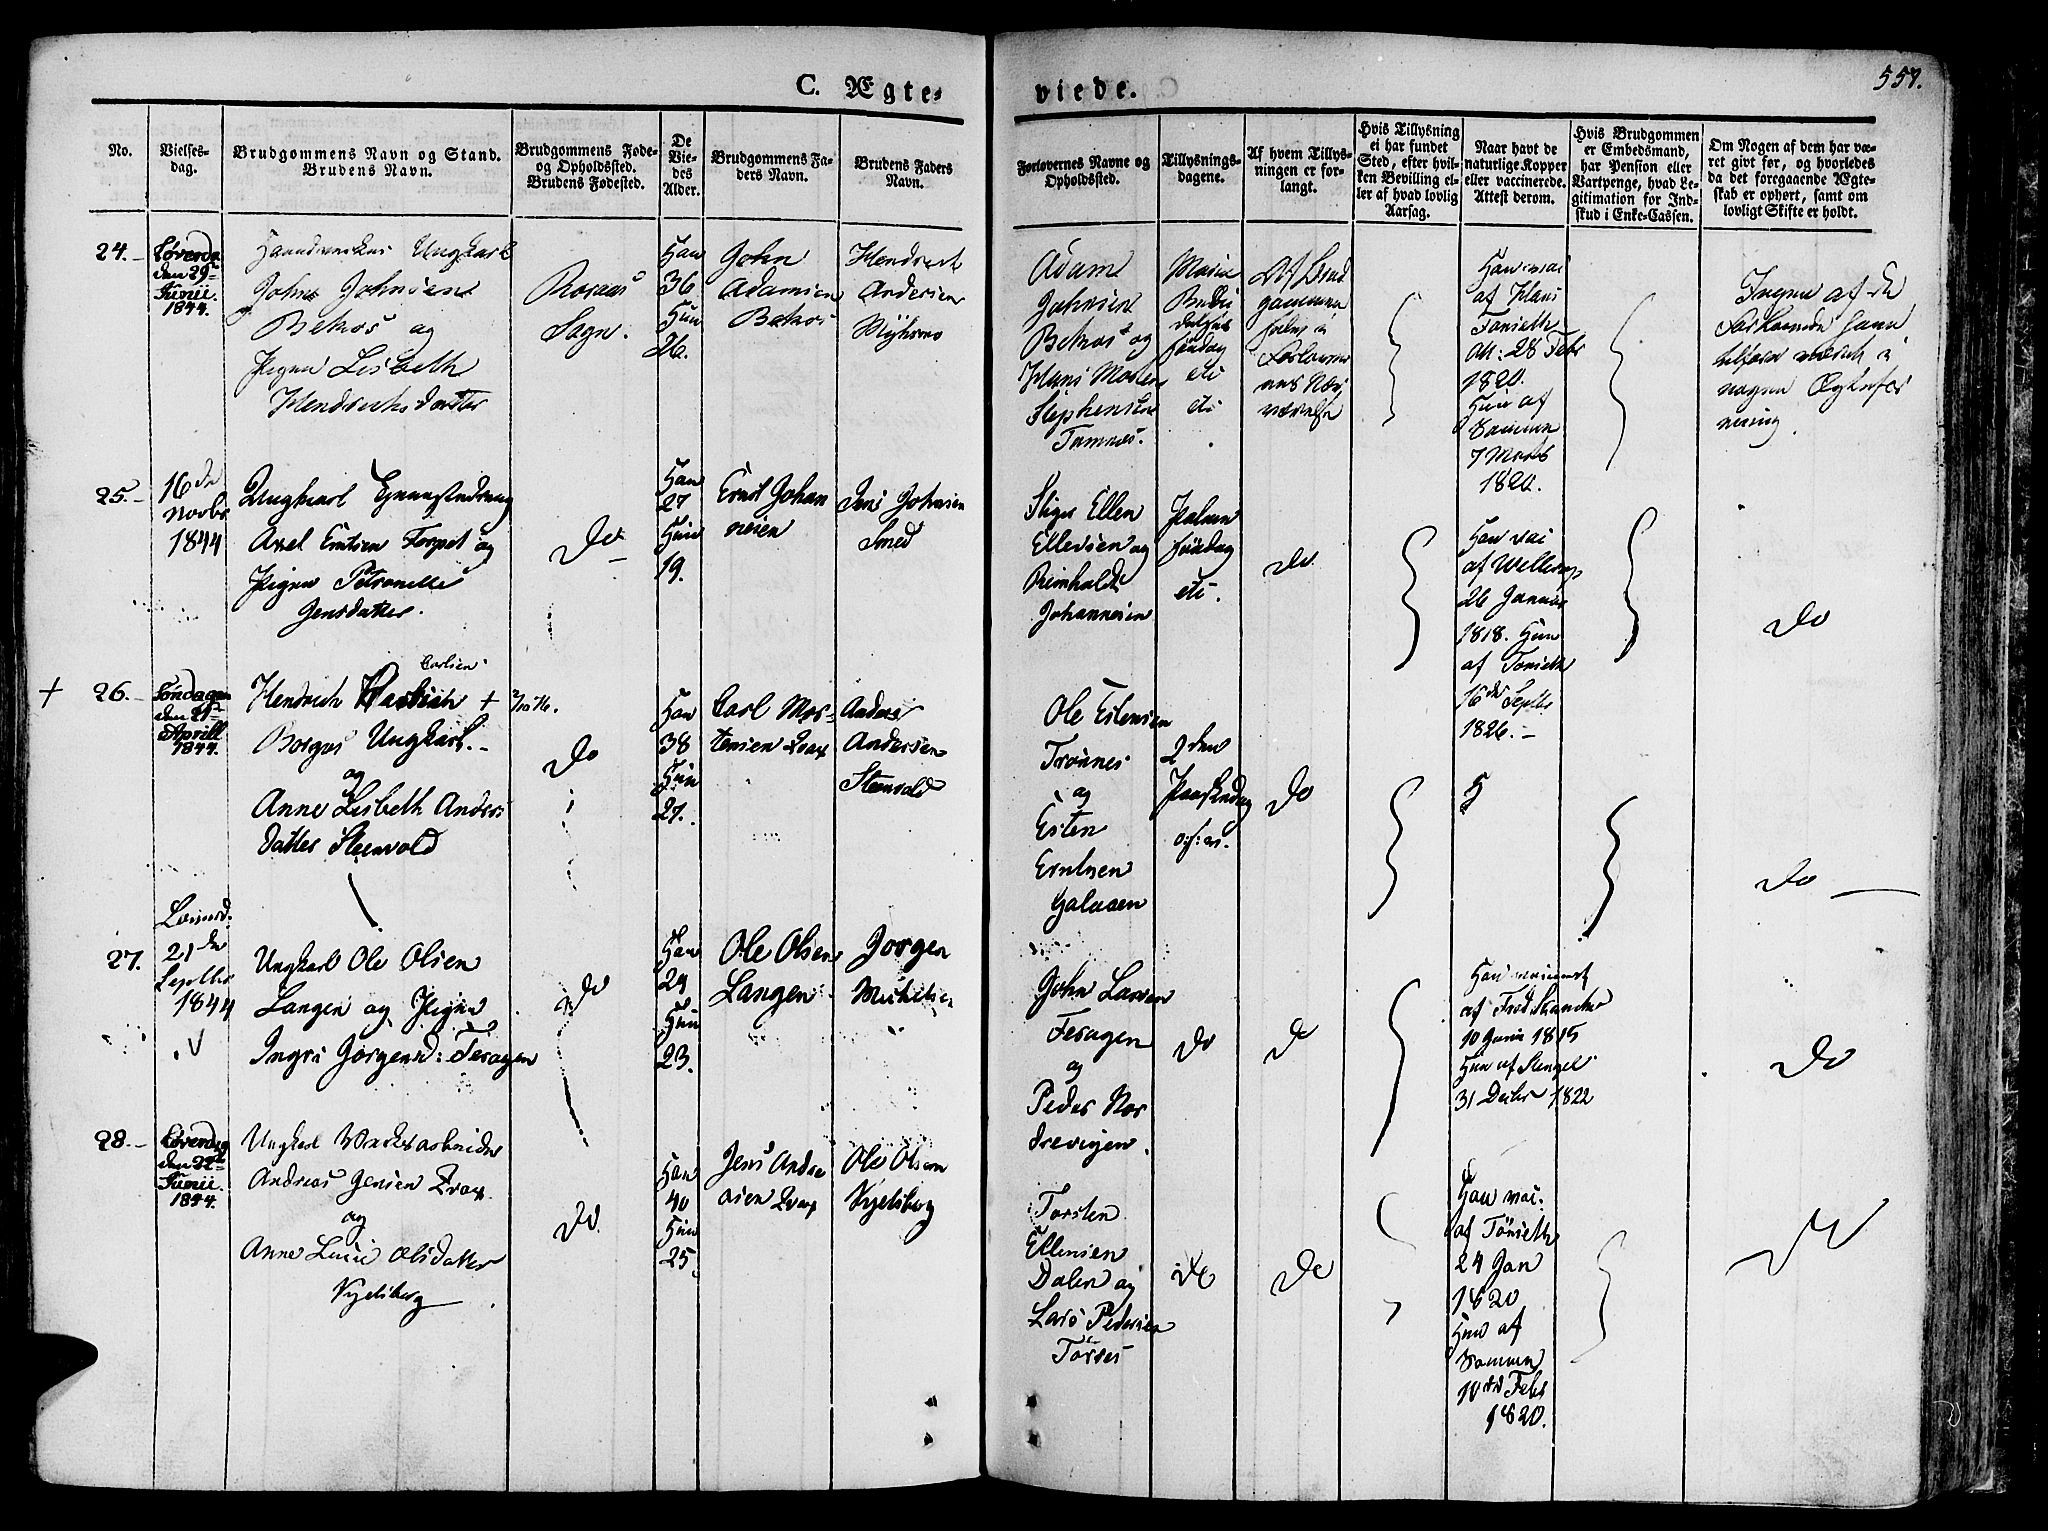 C. Ægte-
viede.
557.
No.
Vielses-
dag.
Brudgommens Navn og Stand.
Brudens Navn.
Brudgommens Føde-
og Opholdssted.
Brudens Fødested.
De
Vie-
des
Alder.
Brudgommens Fa-
ders Navn.
Brudens Faders
Navn.
Forlovernes Navne og
Opholdssted.
Tillysnings-
dagene.
Af hvem Tillys-
ningen er for-
langt.
Hvis Tillysning
ei har fundet
Sted, efter hvil-
ken Bevilling el-
ler af hvad lovlig
Aarsag.
Naar havt de
naturlige Kopper
eller vaccinerede.
Attest derom.
Hvis Brudgommen
er Embedsmand,
har Pension eller
Vartpenge, hvad Le-
gitimation for Ind-
skud i Enke-Cassen.
Om Nogen af dem har væ-
ret givt før, og hvorledes
da det foregaaende Ægte-
skab er ophørt, samt om
lovligt Skifte er holdt.
24.
Løverdag
den 29de
Junii
1844.
Ungkarl
John Johnsen
Bekos og
Pigen Lisbeth
Hendrichsdatter
Roraas
Sogn.
Han
36
Hun
26.
John
Adamsen
Bekos
Hendrich
Andersen
Adam
Johnsen
Bekos og
Hans Morten
Stephensen
Tamnes.
Maria
søndag
etc
etc
Af Brud
gommen
Forlover
nes Nær
værelse
Han vac
af Hans
Tønseth
att: 28 Febr
1820.
Hun af
Samme
7 Marts
1820.
Ingen af de
nogen Ægtefor
ening.
25.
16de
Novbr
1844
Ungkarl
Axel Erntsen Torpet og
Pigen Petronelle
Jensdatter.
Do
Han
27
Hun
19.
Ernst Johan
nesen
Jens Johnsen
Smed
Ellen
Ellevsen og
Reinholdt
Johannesen
Palme
søndag
etc.
Do
Han vac
af
26 Januar
1818. Hun
af Tønseth
16de Septbr
1826.
Do
26.
Søndagen
den 21de
Aprill
1844.
Carlsen
Hendrich +
Borgos Ungkarl.
og
Anne Lisbeth Anders
datter Steenvold
Do
Han
38
Hun
27.
Carl Mor-
tensen Kvax
Anders
Andersen
Steenvold
Ole Estensen
Trønnes
og
Esten
Erntsen
Galaaen
2den
Paaskedag
o.s.v.
Do
Do
27.
Løverd.
21de
Septbr
1844
Ungkarl Ole Olsen
Langen og Pigen
Ingri Jørgensd: Feragen
Do
Han
29
Hun
23.
Ole Olsen
Langen
Jørgen
Michelsen
John Larsen
Feragen
og
Peder Nor
drevigen.
Do
Do
Han vaccinert
af Fred
10 Junii 1815
Hun af Stengel
31 Decbr 1822
Do
28.
Løverdag
den 22de
Junii
1844.
Ungkarl
Andreas Jensen Kvax
og
Anne Lucie Olsdatter
Vyelsberg
Do.
Han
40
Hun
25.
Jens Andre
asen Kvax
Ole Olsen
Vyelsberg
Torsten
Ellensen
Dalen og
Lars Pedersen
Torres
Do
Do
Han vac.
af Tønseth
24 Jan
1820
Hun af
Samme
10de Febr
1820.